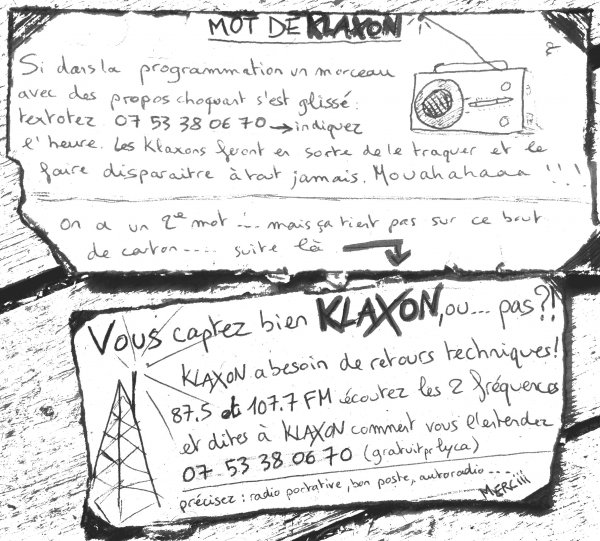 MOT DE KLAXON
Si dans la programmation un morceau
avec des propos choquant s'est glissé.
textotez 07 53 38 06 70 → indiquez
l'heure. Les Klaxons feront en sorte de le traquer et le
faire disparaitre à tout jamais. Mouahahaaa !!!
On a un 2e mot ... mais ça tient pas sur ce bout
de carton.... suite là
Vous captez bien KLAXON, ou... pas?!
KLAXON a besoin de retours techniques!
87.5 et 107.7 FM écoutez les 2 fréquences
et dites à KLAXON comment vous l'entendez
07 53 38 06 70 (gratuit pr lyca)
précisez : radio portative, bon poste, autoradio....
MERCiii